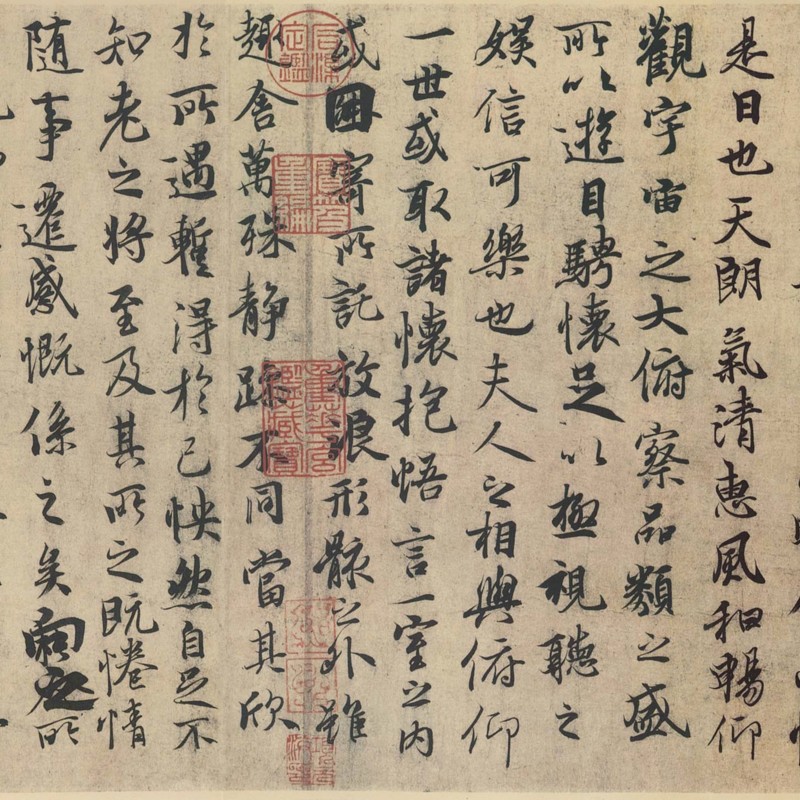 是日也天朗氣清惠風和暢仰
觀宇宙之大俯察品類之盛
所以遊目騁懷足以極視聽之
娛信可樂也夫人之相與俯仰
一世或取諸懷抱悟言一室之内
或因寄所託放浪形骸之外雖
趣舍萬殊静躁不同當其欣
於所遇暫得於己怏然自足不
知老之將至及其所之既惓情
隨事遷感慨係之矣向之所